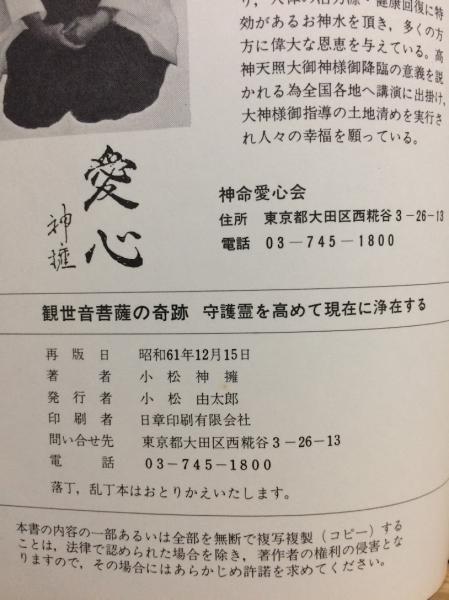 り，人体の活力源・健康回復に特
効があるお神水を頂き，多くの方
方に偉大な恩恵を与えている。高
神天照大御神様御降臨の意義を説
かれる為全国各地へ講演に出掛け，
大神様御指導の土地清めを実行さ
れ人々の幸福を願っている。
愛心
神擁
神命愛心会
住所 東京都大田区西糀谷3-26-13
電話 03-745-1800
観世音菩薩の奇跡 守護霊を高めて現在に浄在する
再版日 昭和61年12月15日
著者 小松神擁
発行者 小松由太郎
印刷者 日章印刷有限会社
問い合せ先 東京都大田区西糀谷3-26-13
電話 03-745-1800
落丁，乱丁本はおとりかえいたします。
本書の内容の一部あるいは全部を無断で複写複製（コピー）する
ことは，法律で認められた場合を除き，著作者の権利の侵害とな
りますので，その場合にはあらかじめ許諾を求めてください。